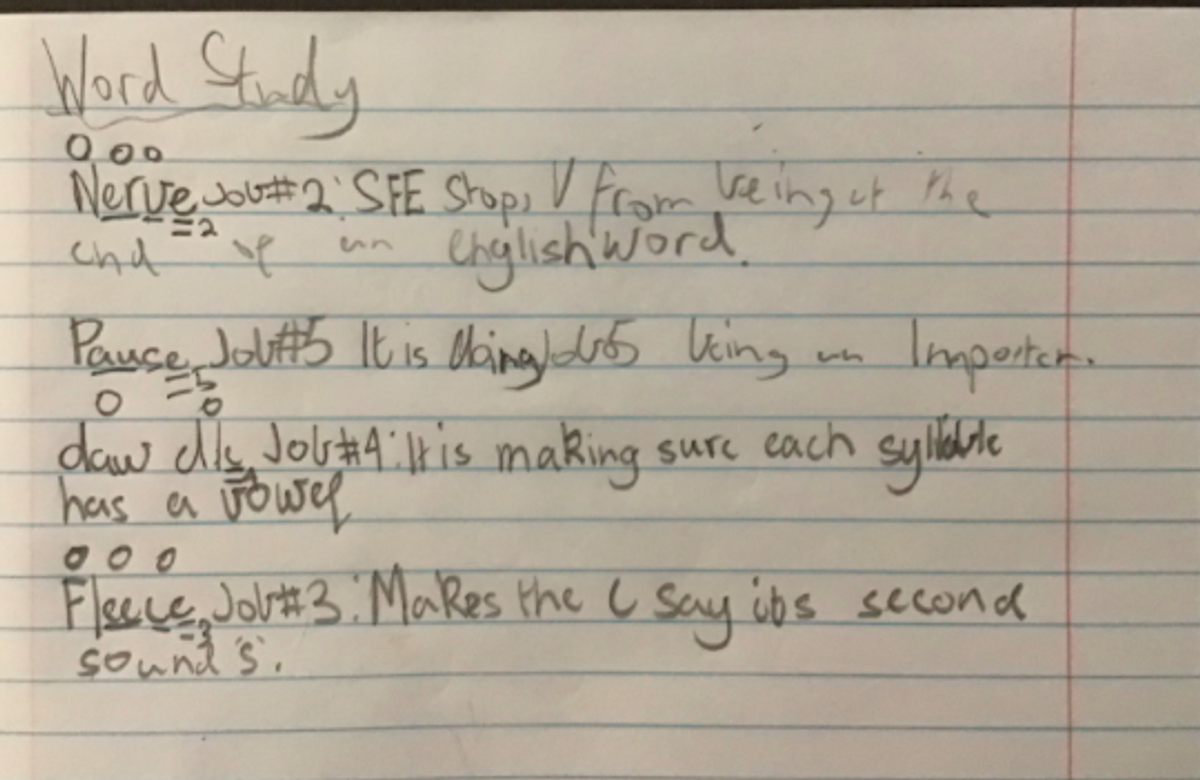 Word Study
o o o
Nerve Job#2: SFE Stops V from being at the
end of an english word.
Pause Job#5 It is doing Job5 being an Importer.
o o
daw dle Job#4: It is making sure each syllable
has a vowel
o o o
Fleece Job#3: Makes the C say its second
sound 's'.